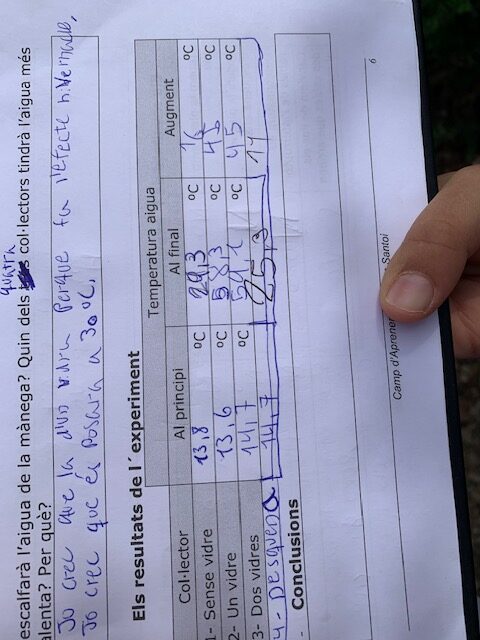 escalfarà l'aigua de la mànega? Quin dels quatra col·lectors tindrà l'aigua més
alenta? Per què?
Jo crec que la dos vidra Perque fa l'efecte hivernacle,
Jo crec que és Posara a 30ºC.
Els resultats de l´experiment
Temperatura aigua
Col·lector Al principi Al final Augment
1- Sense vidre 13,8 ºC 29,3 ºC 16 ºC
2- Un vidre 13,6 ºC 58,3 ºC 45 ºC
3- Dos vidres 14,7 ºC 59,1 ºC 45 ºC
4- Desquena 14,7 25,3 11
- Conclusions
6
Camp d'Aprenen Santoi